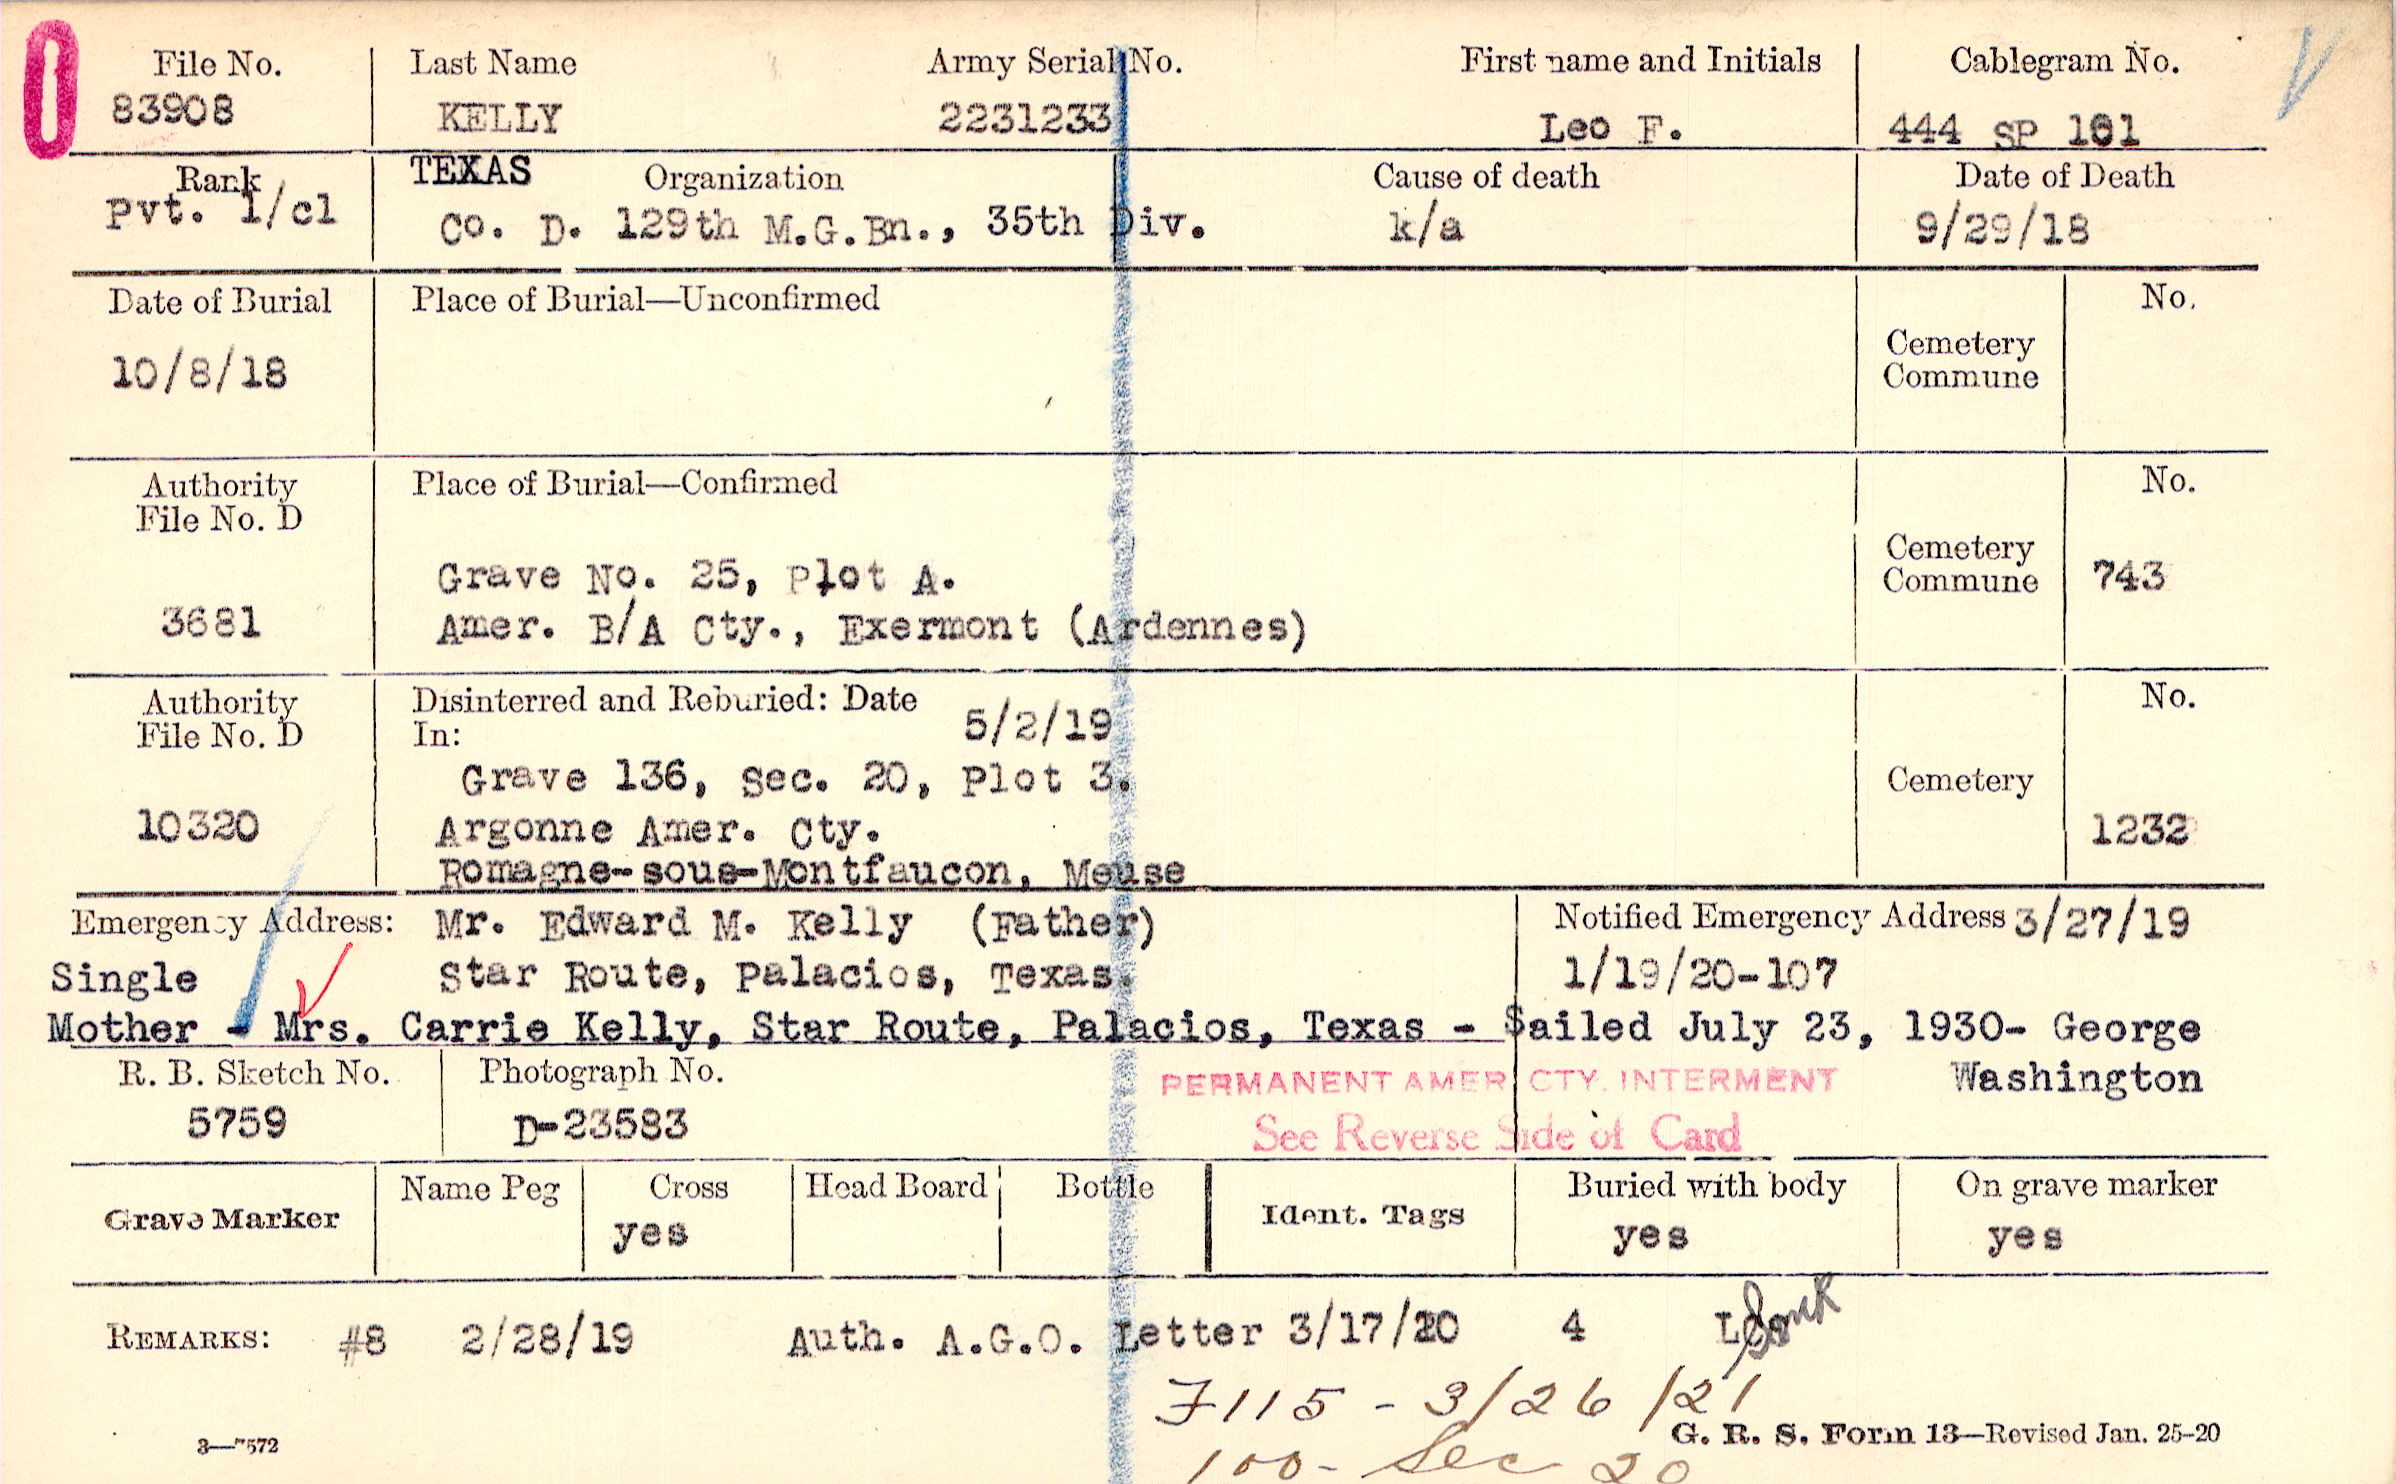 File No. Last Name Army Serial No. First name and Initials Cablegram No.
83908 KELLY 2231233 Leo F. 444 SP 181
Rank TEXAS Organization Cause of death Date of Death
Pvt. 1/cl Co. D. 129th M.G.Bn., 35th Div. k/a 9/29/18
Date of Burial Place of Burial—Unconfirmed No.
10/8/18 Cemetery
Commune
Authority Place of Burial—Confirmed No.
File No. D
Grave No. 25, Plot A. Cemetery
Commune 743
3681 Amer. B/A Cty., Exermont (Ardennes)
Authority Disinterred and Reburied: Date 5/2/19 No.
File No. D In:
Grave 136, Sec. 20, Plot 3. Cemetery
10320 Argonne Amer. Cty. 1232
Romagne-sous-Montfaucon, Meuse
Emergency Address: Mr. Edward M. Kelly (Father) Notified Emergency Address 3/27/19
Single Star Route, Palacios, Texas. 1/19/20-107
Mother - Mrs. Carrie Kelly, Star Route, Palacios, Texas - Sailed July 23, 1930- George
Washington
R. B. Sketch No. Photograph No. PERMANENT AMER CTY. INTERMENT
5759 D-23583 See Reverse Side of Card
Grave Marker Name Peg Cross Head Board Bottle Ident. Tags Buried with body On grave marker
yes yes yes
REMARKS: #8 2/28/19 Auth. A.G.O. Letter 3/17/20 4
F115 - 3/26/21
100- Sec 20
3—7572 G. R. S. Form 13—Revised Jan. 25-20